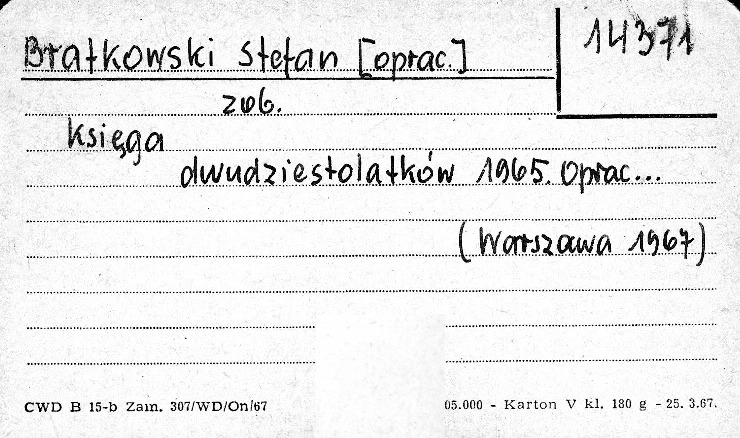 Bratkowski Stefan [oprac.]
14371
zob.
Księga
dwudziestolatków 1965. Oprac...
(Warszawa 1967)
CWD B 15-b Zam. 307/WD/On/67
05.000 - Karton V kl. 180 g - 25. 3.67.